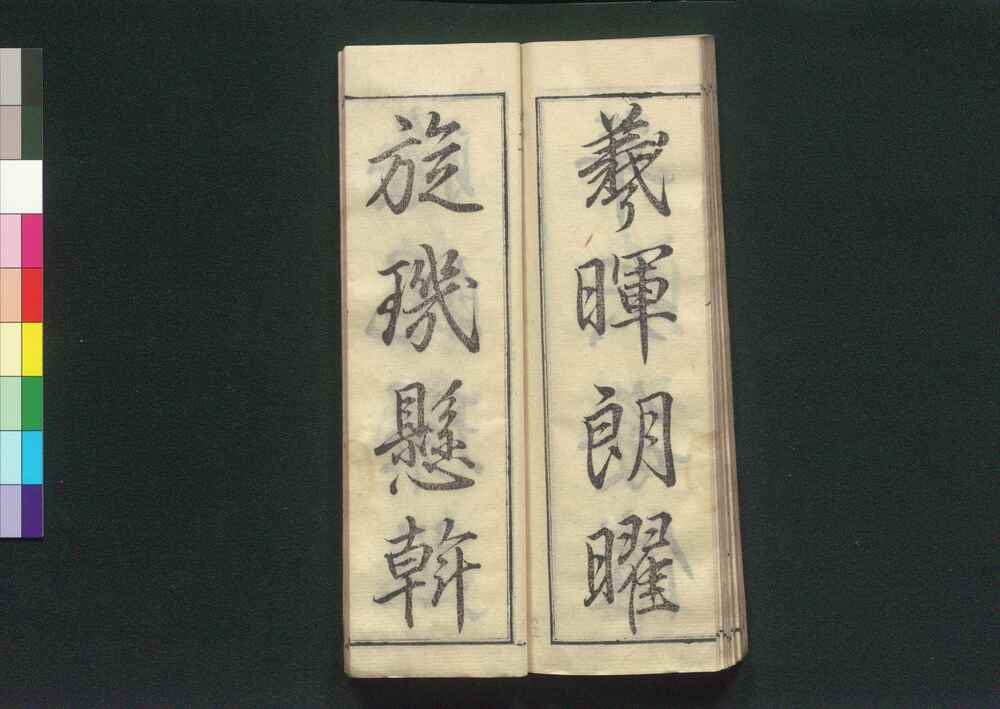 羲暉朗曜
旋璣懸斡